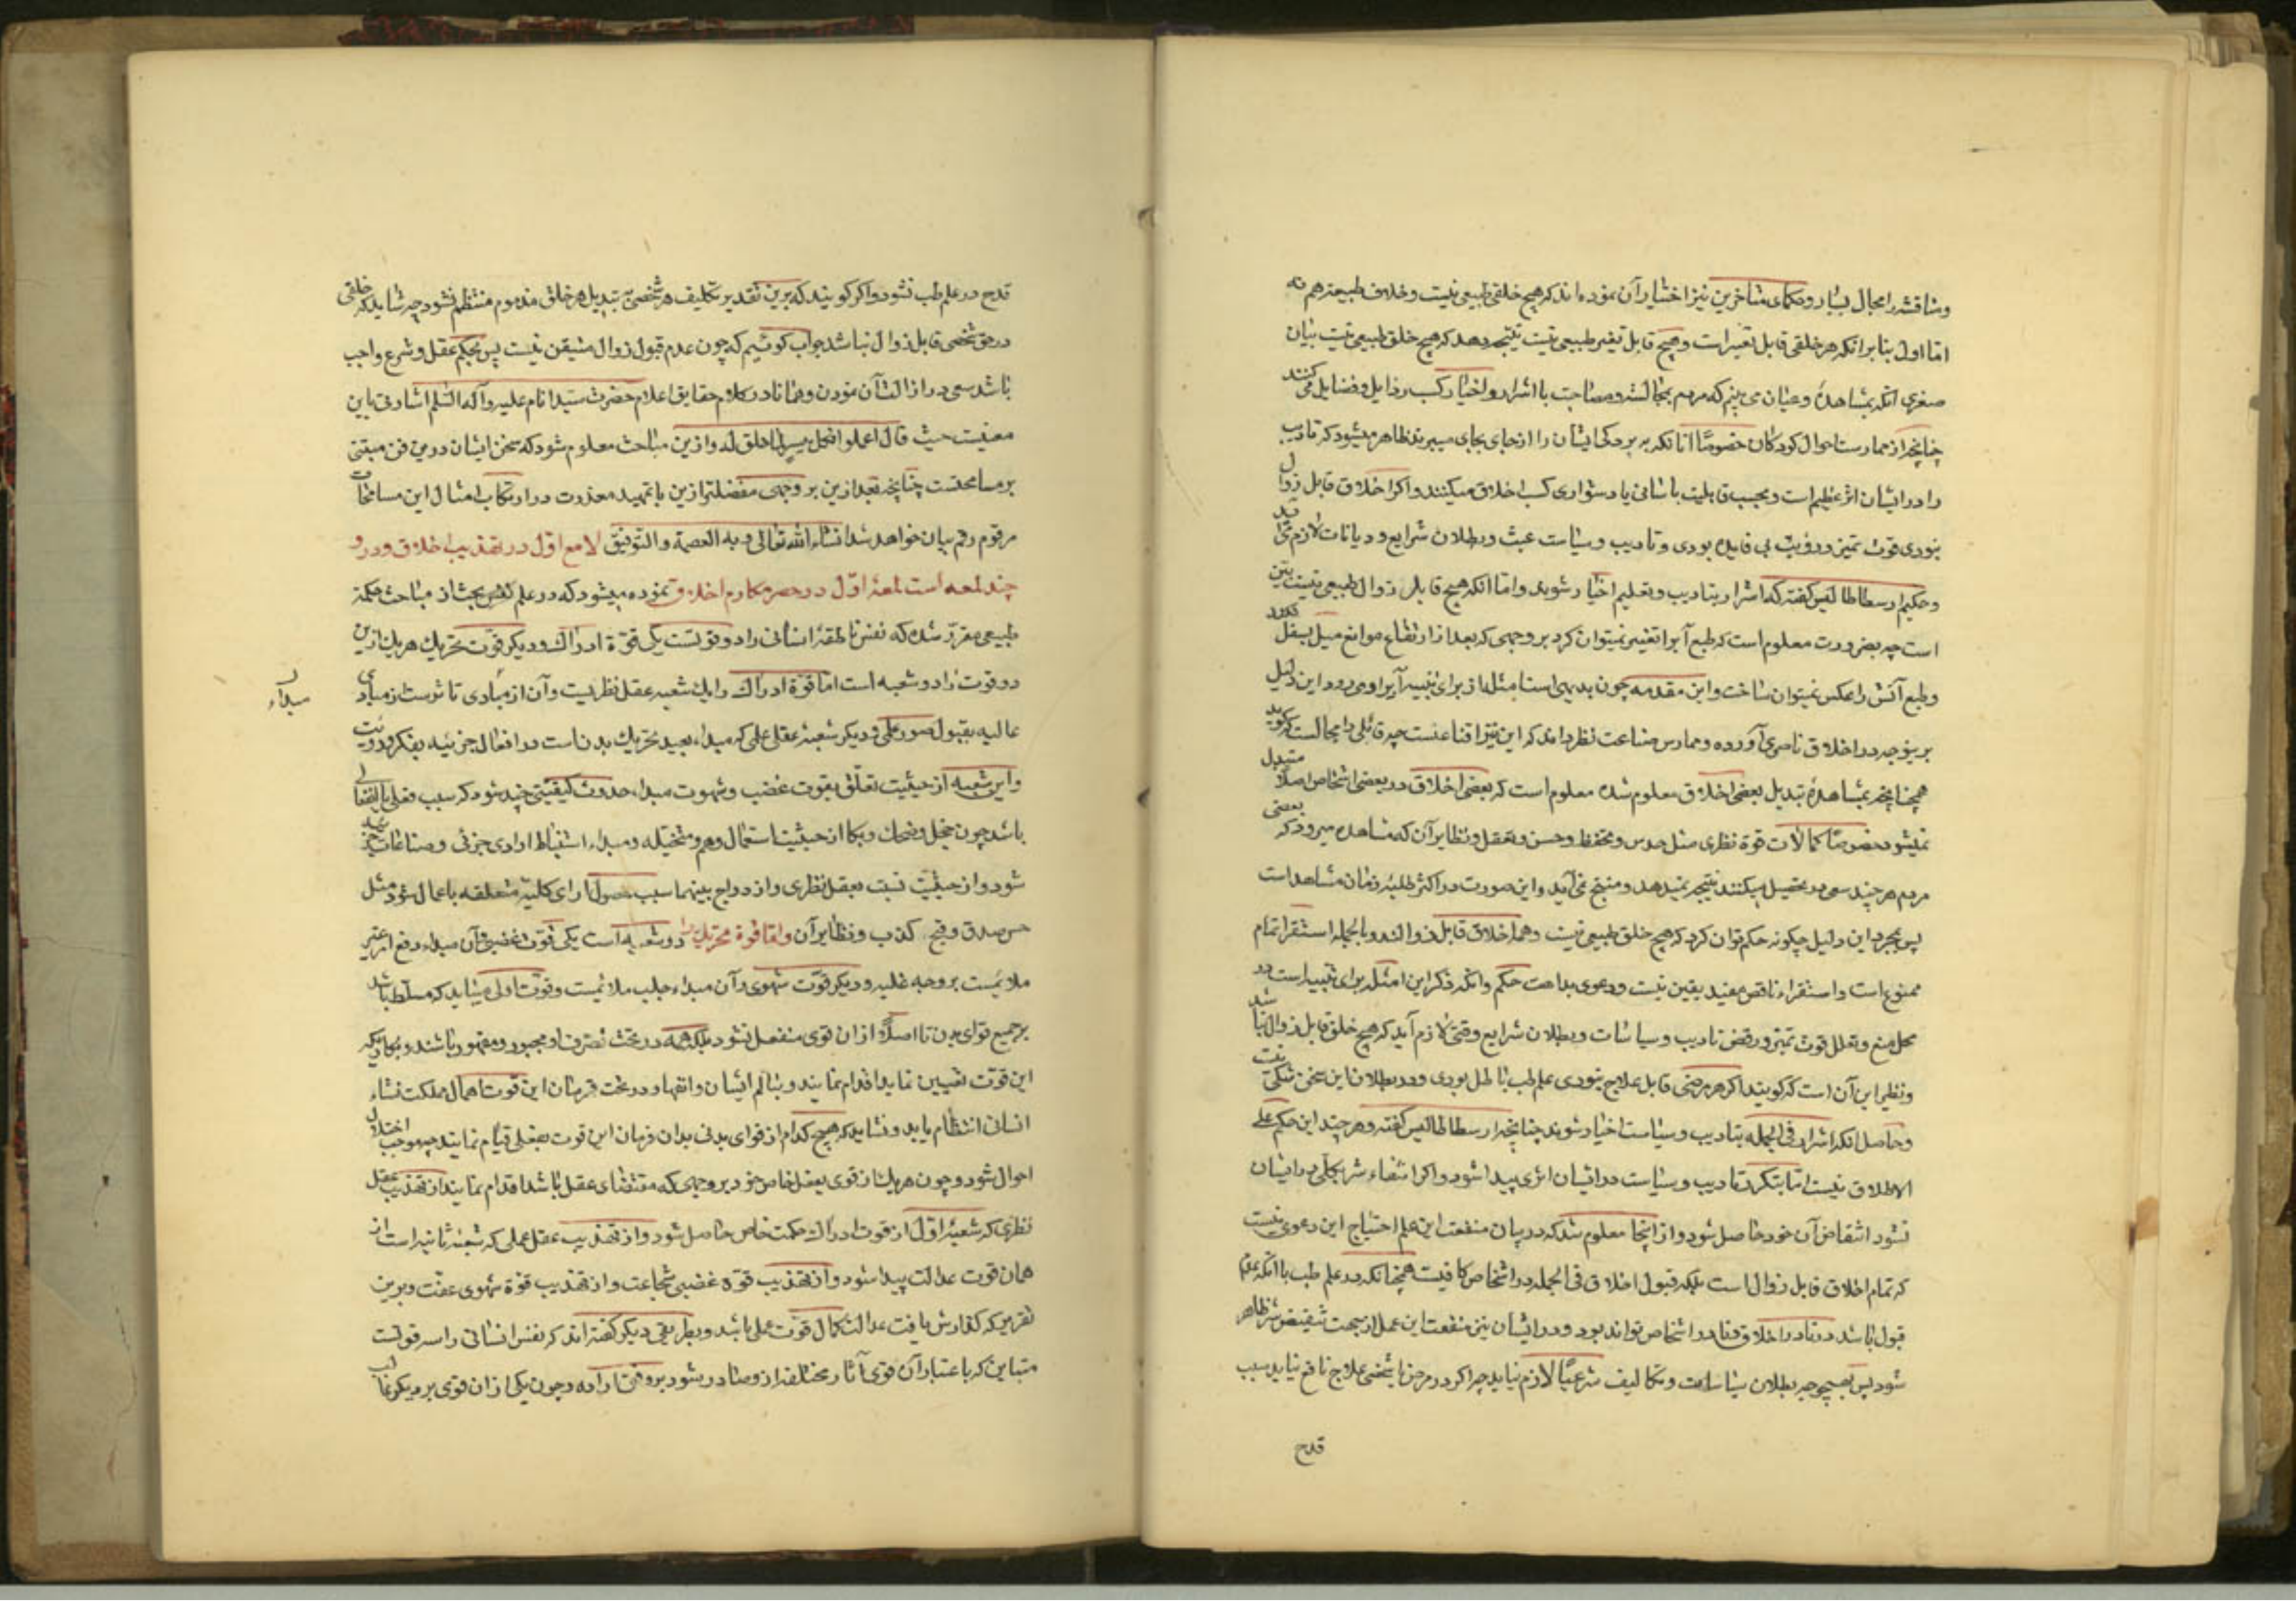 ومناقشه را مجال بسیار و حکمای متاخرین نیز اختیار آن نموده‌اند که هیچ خلقی طبیعی نیست و خلاف طبیعت هم نه
اما اول بنا بر انکه هر خلقی قابل تغیر است و هیچ قابل تغیر طبیعی نیست نتیجه دهد که هیچ خلق طبیعی نیست بیان
صغری انکه بمشاهده و عیان می بینم که مردم بمجالست و مصاحبت با اشرار و اخیار کسب رذایل و فضایل می کنند
چنانچه از ممارست احوال کودکان خصوصا انانکه به بردکی ایشان را از جای بجای میبرند ظاهر میشود که تادیب
را در ایشان اثر عظیم است و بحسب قابلیت باسانی یا دشواری کسب اخلاق میکنند و اکر اخلاق قابل زوال
نبودی قوت تمیز و رویت بی فایده بودی و تادیب و سیاست عبث و بطلان شرایع و دیانات لازم
و حکیم ارسطاطالیس کفته که اشرار بتادیب و تعلیم اخیار شوند و اما انکه هیچ قابل زوال طبیعی نیست
است چه بضرورت معلوم است که طبع آب را تغییر نمیتوان کرد بر وجهی که بعد از ارتفاع موانع میل بسفل نکند
و طبع آتش را عکس نمیتوان ساخت و این مقدمه چون بدیهی است امثله از برای تنبیه آن ایراد می رود این دلیل
برینوجه در اخلاق ناصری آورده و ممارس صناعت نظر داند که این نیز اقناعیست چه قائلی را مجالست که کوید
همچنانچه بمشاهده تبدیل بعضی اخلاق معلوم شده معلوم است که بعضی اخلاق در بعضی اشخاص اصلا متبدل
نمیشود خصوصا کمالات قوة نظری مثل حدس و تحفظ و حسن و تعقل و نظایر آن که مشاهده میرود که بعضی
مردم هر چند سعی در تحصیل میکنند نتیجه نمیدهد و منتج نمی آید و این صورت در اکثر طلبه زمان مشاهد است
پس بمجرد این دلیل چکونه حکم توان کرد که هیچ خلق طبیعی نیست و همه اخلاق قابل زوالند و بالجمله استقرا تمام
ممنوع است و استقراء ناقص مفید یقین نیست و دعوی بداهت حکم و انکه ذکر این امثله برای تنبیه است در
محل منع و تعلل قوت تمیز و رفض تادیب و سیاسات و بطلان شرایع وقتی لازم آید که هیچ خلق قابل زوال نباشد
و نظیر این آن است که کویند اکر هر مرضی قابل علاج نبودی علم طب باطل بودی و در بطلان این سخن شکی نیست
و حاصل انکه اشرار فی الجمله بتادیب و سیاست اخیار شوند چنانچه ارسطاطالیس کفته و هر چند این حکم علی
الاطلاق نیست اما بتکرر تادیب و سیاست در ایشان اثری پیدا شود و اکر انتفاء شر بکلی در ایشان
نشود انتقاص آن خود حاصل شود و از اینجا معلوم شد که در بیان منفعت این علم احتیاج این دعوی نیست
که تمام اخلاق قابل زوال است بلکه قبول اخلاق فی الجمله در اشخاص کافیست همچنانکه در علم طب با انکه عدم
قبول باشد در نادر اخلاق و نادر اشخاص تواند بود و در ایشان نیز منفعت این عمل از جهت تنقیض شر ظاهر
شود پس بهیچوجه بطلان سیاسات و تکالیف شرعیا لازم نیاید چه اکر در مرض یا شخصی علاج نافع نیاید سبب
قدح
قدح در علم طب نشود و اکر کویند که برین تقدیر تکلیف هر شخصی به تبدیل هر خلق مذموم منتظم نشود چه شاید که خلقی
در حق شخصی قابل زوال نباشد جواب کوئیم که چون عدم قبول زوال متیقن نیست پس بحکم عقل و شرع واجب
باشد سعی در ازالت آن نمودن و همانا در کلام حقایق اعلام حضرت سید انام علیه و آله السلم اشارتی باین
معنیست حیث قال اعملوا فکل میسر لما خلق له و ازین مباحث معلوم شود که سخن ایشان درین فن مبتنی
بر مسامحتست چنانچه بعد ازین بر وجهی مفصلتر ازین با تمهید معذرت در ارتکاب امثال این مسامحات
مرقوم رقم بیان خواهد شد انشاء الله تعالی و به العصمة و التوفیق لامع اول در تهذیب اخلاق و درو
چند لمعه است لمعهٔ اول در حصر مکارم اخلاق نموده میشود که در علم نفس بحث از مباحث حکمة
طبیعی مقرر شده که نفس ناطقهٔ انسانی را دو قوتست یکی قوة ادراک و دیکر قوت تحریک هر یک ازین
دو قوت را دو شعبه است اما قوة ادراک را یک شعبه عقل نظریست و آن از مبادی تاثرست از مبادی
مبداء
عالیه بقبول صور علمی و دیکر شعبهٔ عقل عملی که مبداء بعید تحریک بدن است در افعال جزئیه بفکر و رویت
و این شعبه از حیثیت تعلق بقوت غضب و شهوت مبداء حدوث کیفیتی چند شود که سبب فعل یا انفعال
باشد چون خجل و ضحک و بکا از حیثیت استعمال وهم و متخیله و مبداء استنباط ارادی جزئی و صناعات
شود و از حیثیت نسبت بعقل نظری و ازدواج بینهما سبب حصول ارای کلیه متعلقه باعمال شود مثل
حسن صدق و قبح کذب و نظایر آن و اما قوة تحریک را دو شعبه است یکی قوت غضبی و آن مبداء دفع امر غیر
ملایمست بر وجه غلبه و دیکر قوت شهوی و آن مبداء جلب ملائمست و قوت اولی میشاید که مسلط باشد
بر جمیع قوای بدن تا اصلا از ان قوی منفعل نشود بلکه همه در تحت تصرف او مجبور و مقهور باشند و بکاریکه
این قوت تعیین نماید اقدام نمایند و بتالم ایشان و انقهاد در تحت فرمان این قوت اهمال مملکت نشاء
انسانی انتظام یابد و نشاید که هیچ کدام از قوای بدنی بدان فرمان این قوت بفعلی قیام نمایند چه موجب اختلال
احوال شود و چون هر یک از قوی بفعل خاص خود بر وجهی که مقتضای عقل باشد اقدام نمایند از تهذیب عقل
نظری که شعبهٔ اول از قوت ادراک حکمت خاص حاصل شود و از تهذیب عقل عملی که شعبهٔ ثانیه است از
همان قوت عدالت پیدا شود و از تهذیب قوة غضبی شجاعت و از تهذیب قوة شهوی عفت و برین
تقریر که کذارش یافت عدالت کمال قوت عملی باشد و بطریقی دیکر کفته اند که نفس انسانی را سه قوتست
متباین که باعتبار آن قوی آثار مختلفه ازو صادر شود بر وفق اراده و چون یکی از ان قوی بر دیکر غالب